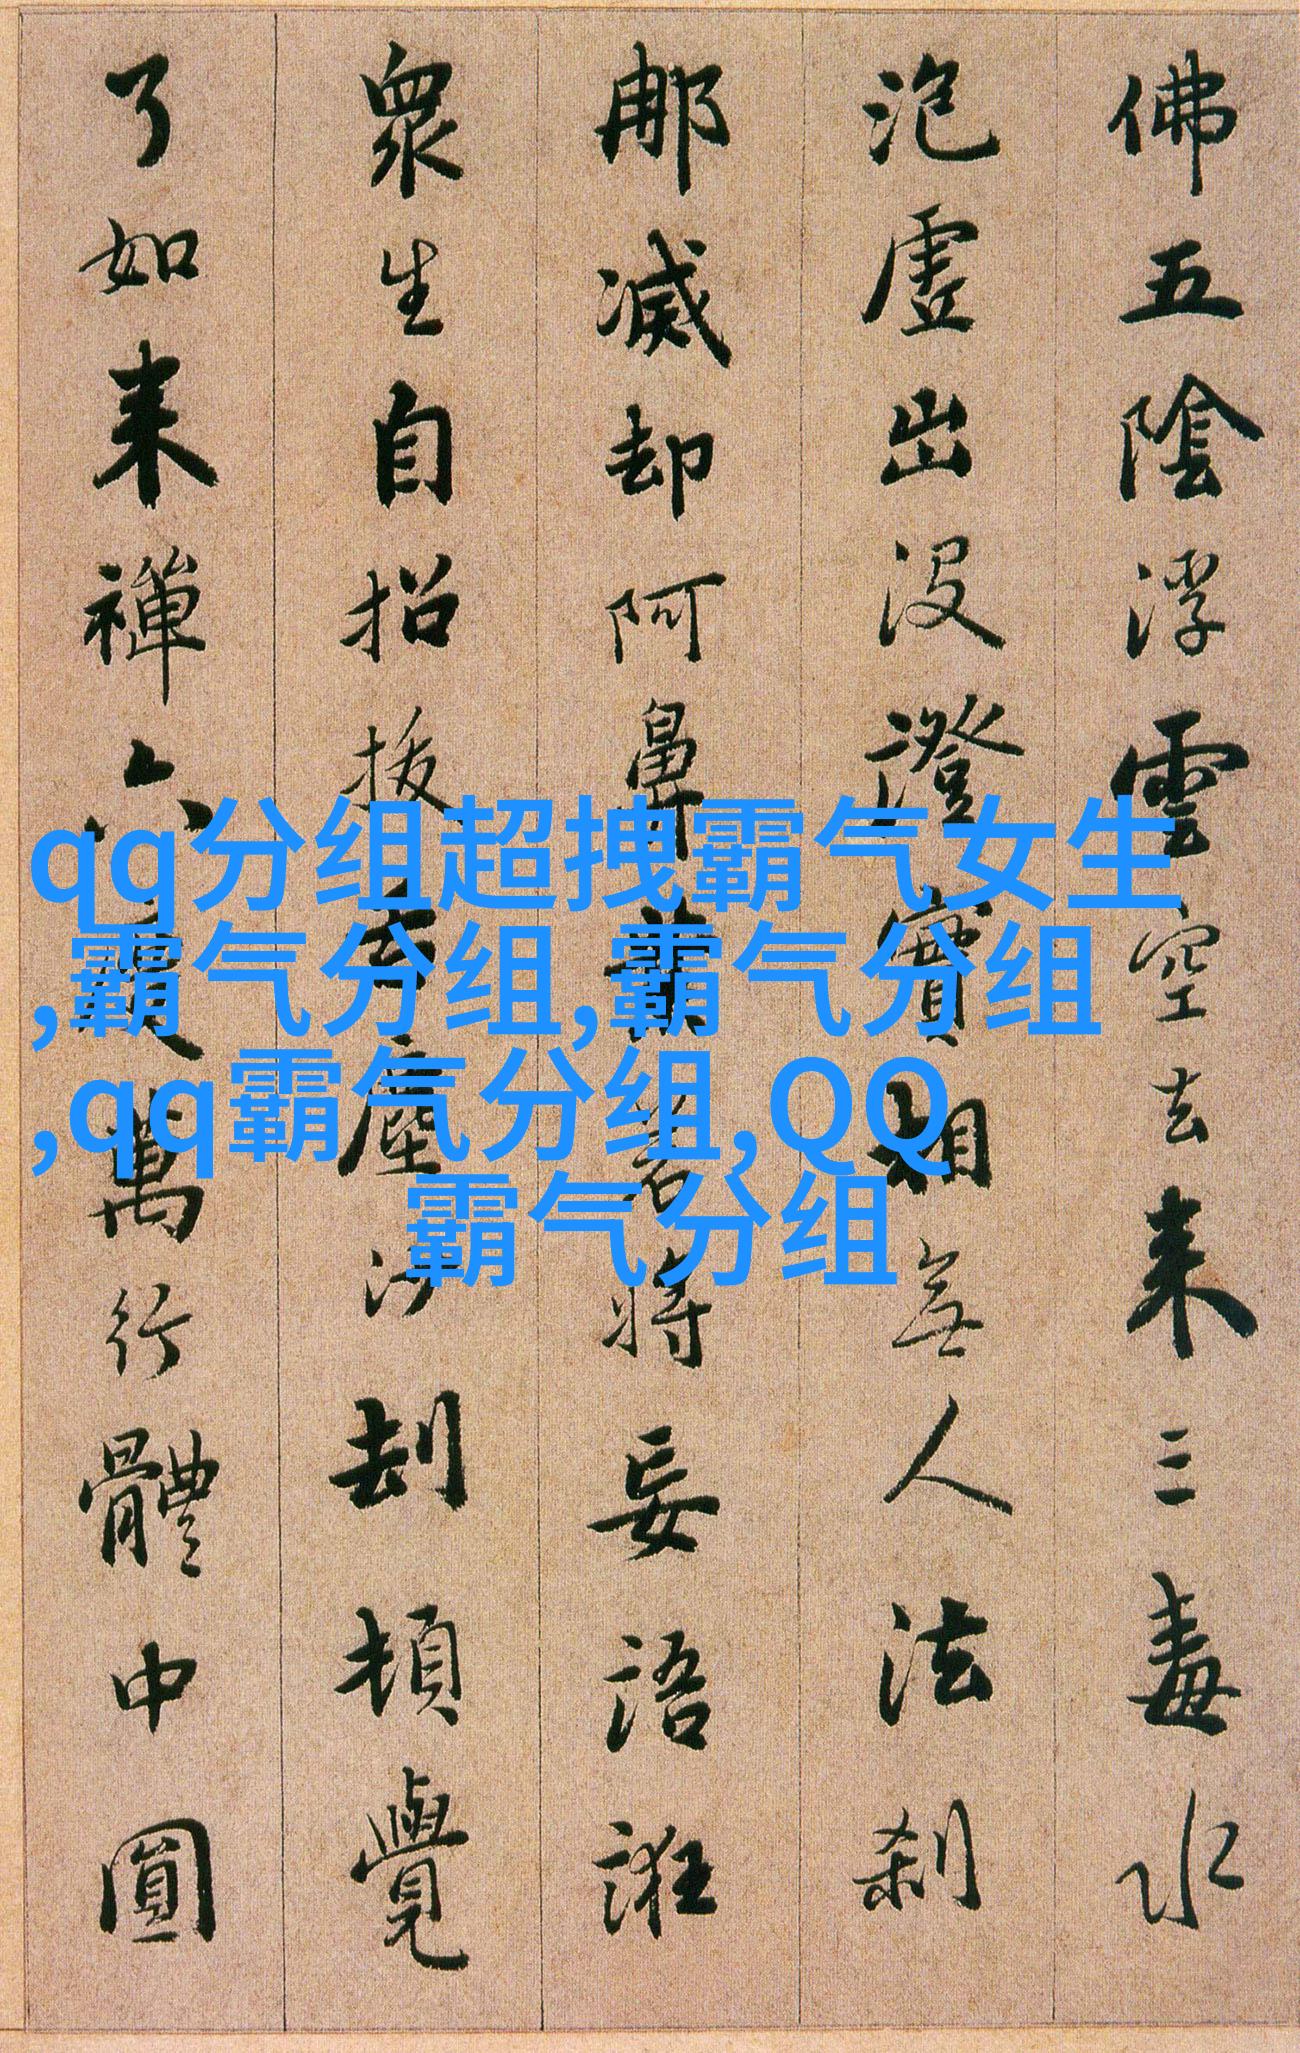 佛五陰浮雲空去来三毒水
泡虛出沒證實相無人法刹
那滅却阿鼻業若將妄語誑
眾生自招拔舌塵沙劫頓覺
了如来禪六度萬行體中圓
qq分组超拽霸气女生
,霸气分组,霸气分组
,qq霸气分组,QQ
霸气分组